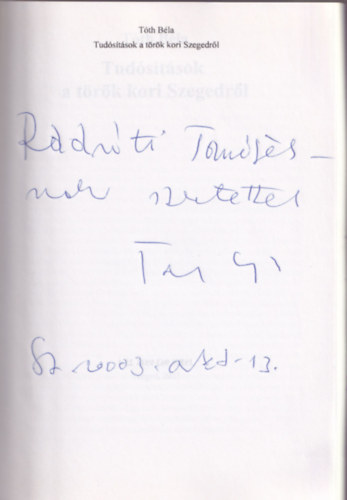 Tóth Béla
Tudósítások a török kori Szegedről
Tudósítások
a török kori Szegedről
Radnóti Tamásés-
nak szeretettel
Sz. 2003. okt. 13.